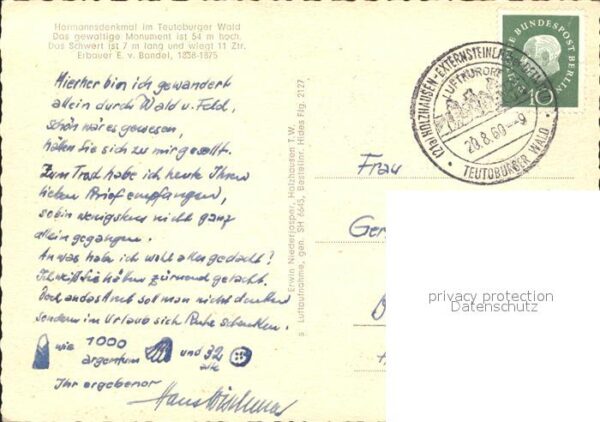 Hermannsdenkmal im Teutoburger Wald
Das gewaltige Monument ist 54 m hoch.
Das Schwert ist 7 m lang und wiegt 11 Ztr.
Erbauer E. v. Bandel, 1838-1875
Hierher bin ich gewandert
allein durch Wald u. Feld,
schön wär es gewesen,
hätten Sie sich zu mir gesellt.
Zum Trost habe ich heute Ihren
lieben Brief empfangen,
so bin wenigstens nicht ganz
allein gegangen.
An was habe ich wohl alles gedacht?
Ich weiß Sie hätten zürnend gelacht.
Doch an das Amt soll man nicht denken
sondern im Urlaub sich Ruhe schenken.
wie 1000
argentum und 32
Ihr ergebener
Erwin Niederjasper, Holzhausen T.W.
s Luftaufnahme, gen. SH 6645, Bestellnr. Hides Flg. 2127
DEUTSCHE BUNDESPOST BERLIN
10
(21a) HOLZHAUSEN-EXTERNSTEINE
LUFTKURORT
20.8.60--9
TEUTOBURGER WALD
Frau
privacy protection
Datenschutz